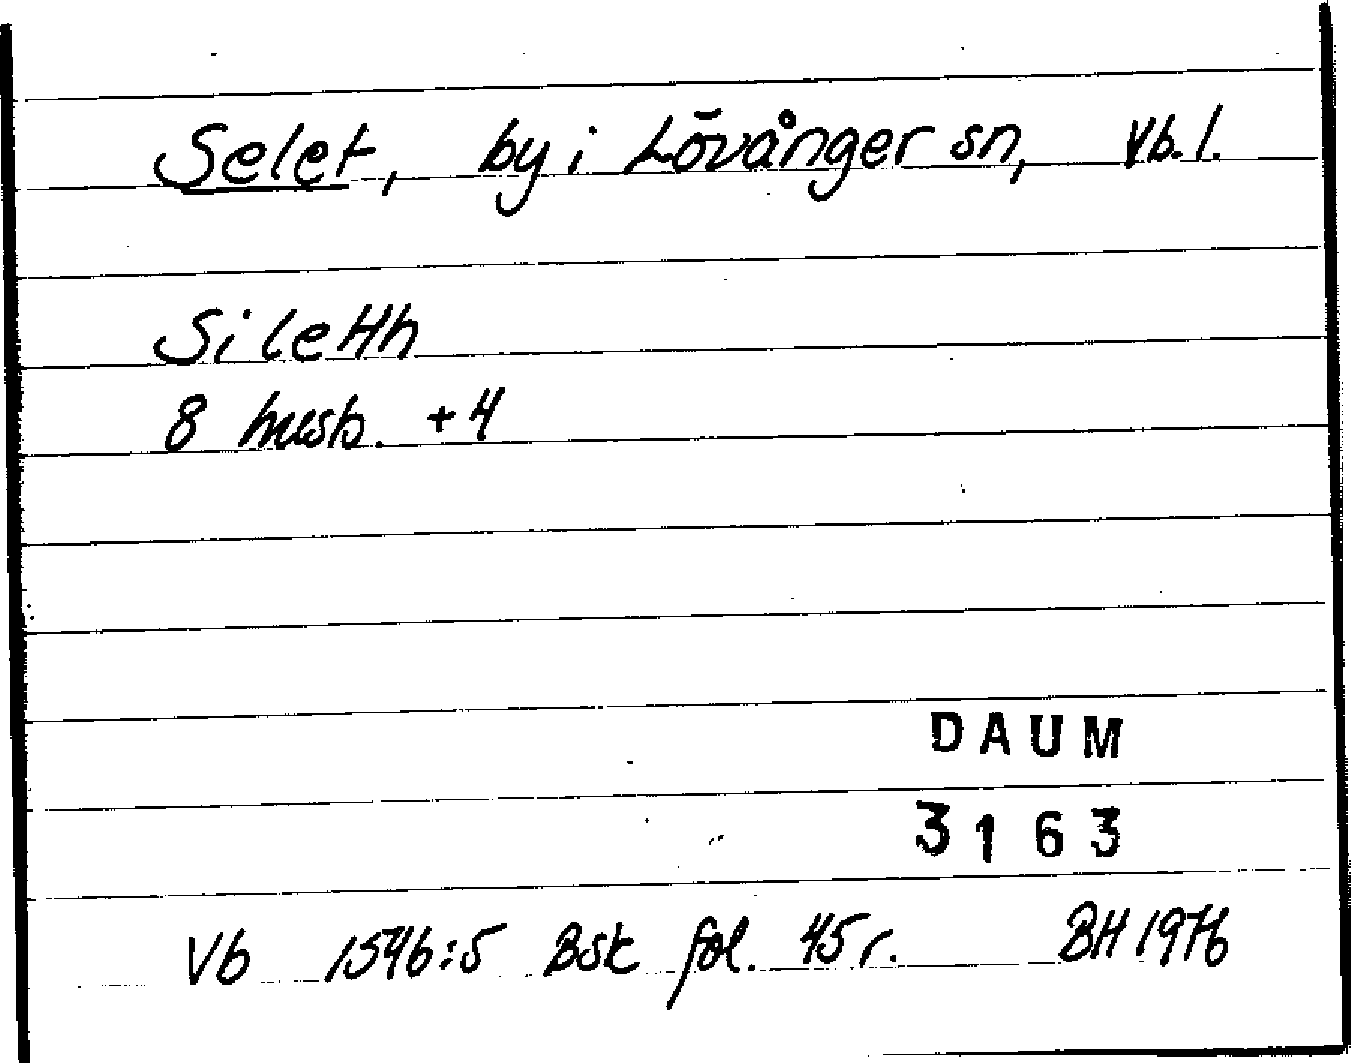 Selet, by i Lövånger sn, Vb. l.
Siletth
8 husb. +4
DAUM
3163
Vb 1546:5 Bsk fol. 45 r. BH 1976